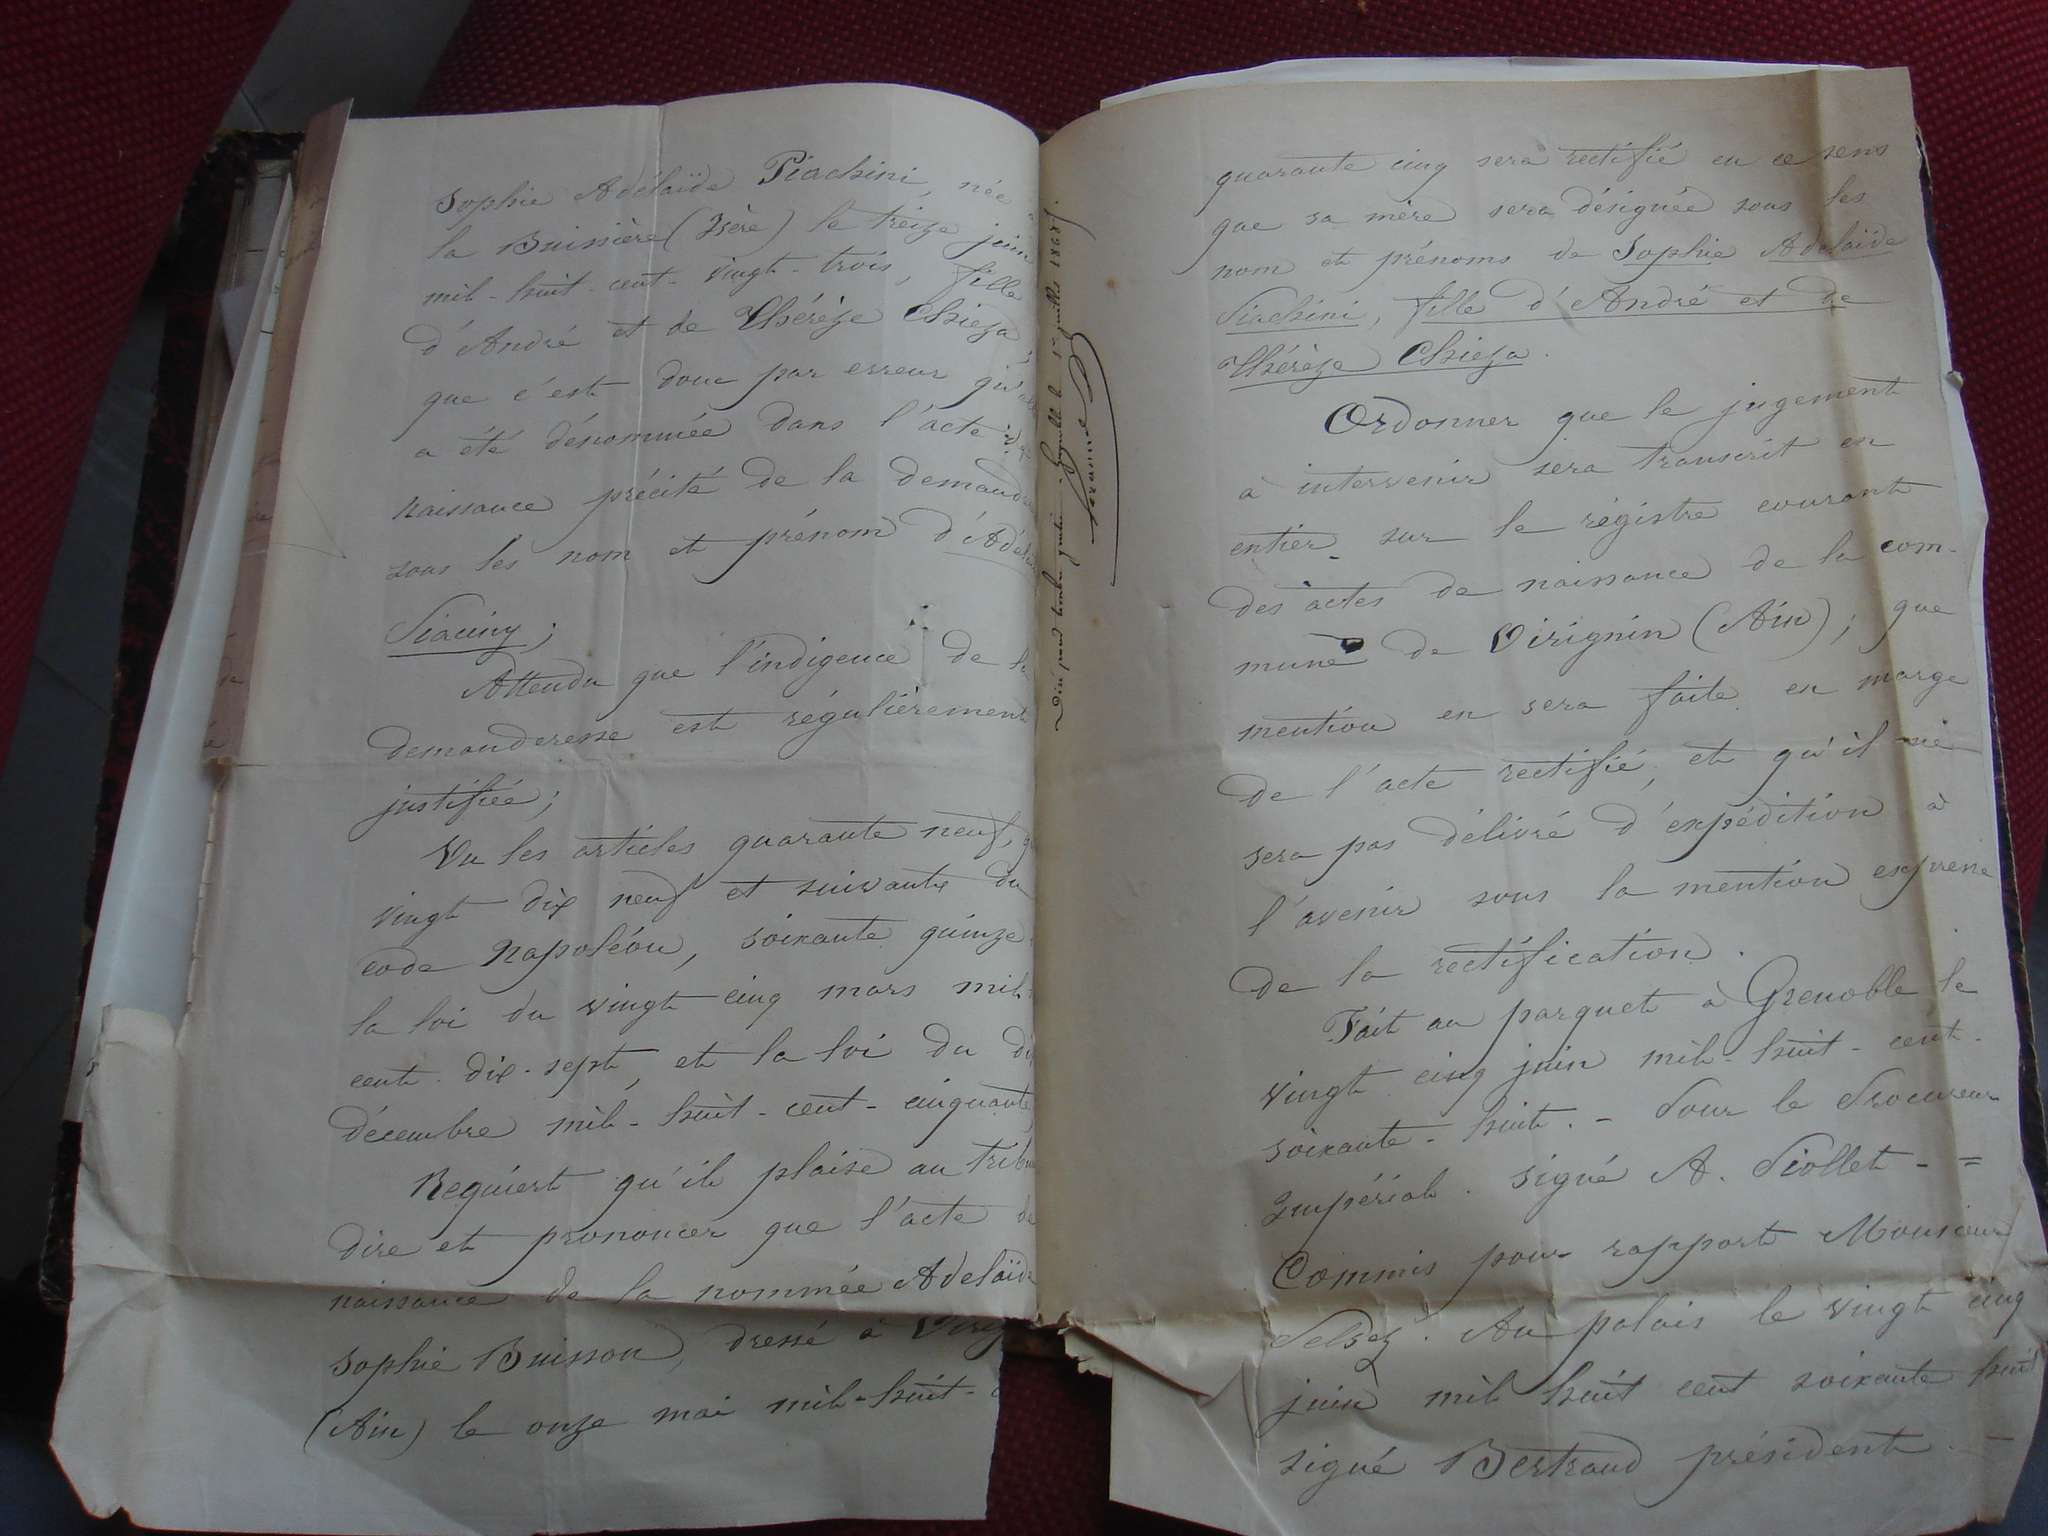 Sophie Adélaïde Piachini, née à
la Buissière (Isère) le treize juin
mil-huit-cent-vingt-trois, fille
d'André et de Thérèze Chieza,
que c'est donc par erreur qu'elle
a été dénommée dans l'acte de
naissance précité de la demande
sous les nom et prénom d'Adél
Piaciny;
Attendu que l'indigence de la
demanderesse est régulièrement
justifiée;
Vu les articles quarante neuf,
vingt dix neuf et suivants du
code Napoléon, soixante quinze
la loi du vingt cinq mars mil
cent-dix-sept, et la loi du dix
décembre mil-huit-cent-cinquante
Requiert qu'il plaise au tribu
dire et prononcer que l'acte de
naissance de la nommée Adelaïde
Sophie Buisson, dressé à Virig
(Ain) le onze mai mil-huit-c
Grenoble le 1er juillet 1868.
quarante cinq sera rectifié en ce sens
que sa mère sera désignée sous les
nom et prénoms de Sophie Adelaïde
Piachini, fille d'André et de
Thérèze Chieza.
Ordonner que le jugement
à intervenir sera transcrit en
entier sur le régistre courant
des actes de naissance de la com-
mune de Virignin (Ain); que
mention en sera faite en marge
de l'acte rectifié, et qu'il ne
sera pas délivré d'expédition à
l'avenir sans la mention expresse
de la rectification.
Fait au parquet à Grenoble le
vingt cinq juin mil-huit-cent-
soixante-huit.- Pour le Procureur
Impérial. signé A. Piollet - =
Commis pour rapport Monsieur
Au palais le vingt cinq
juin mil huit cent soixante huit
signé Bertrand président. -